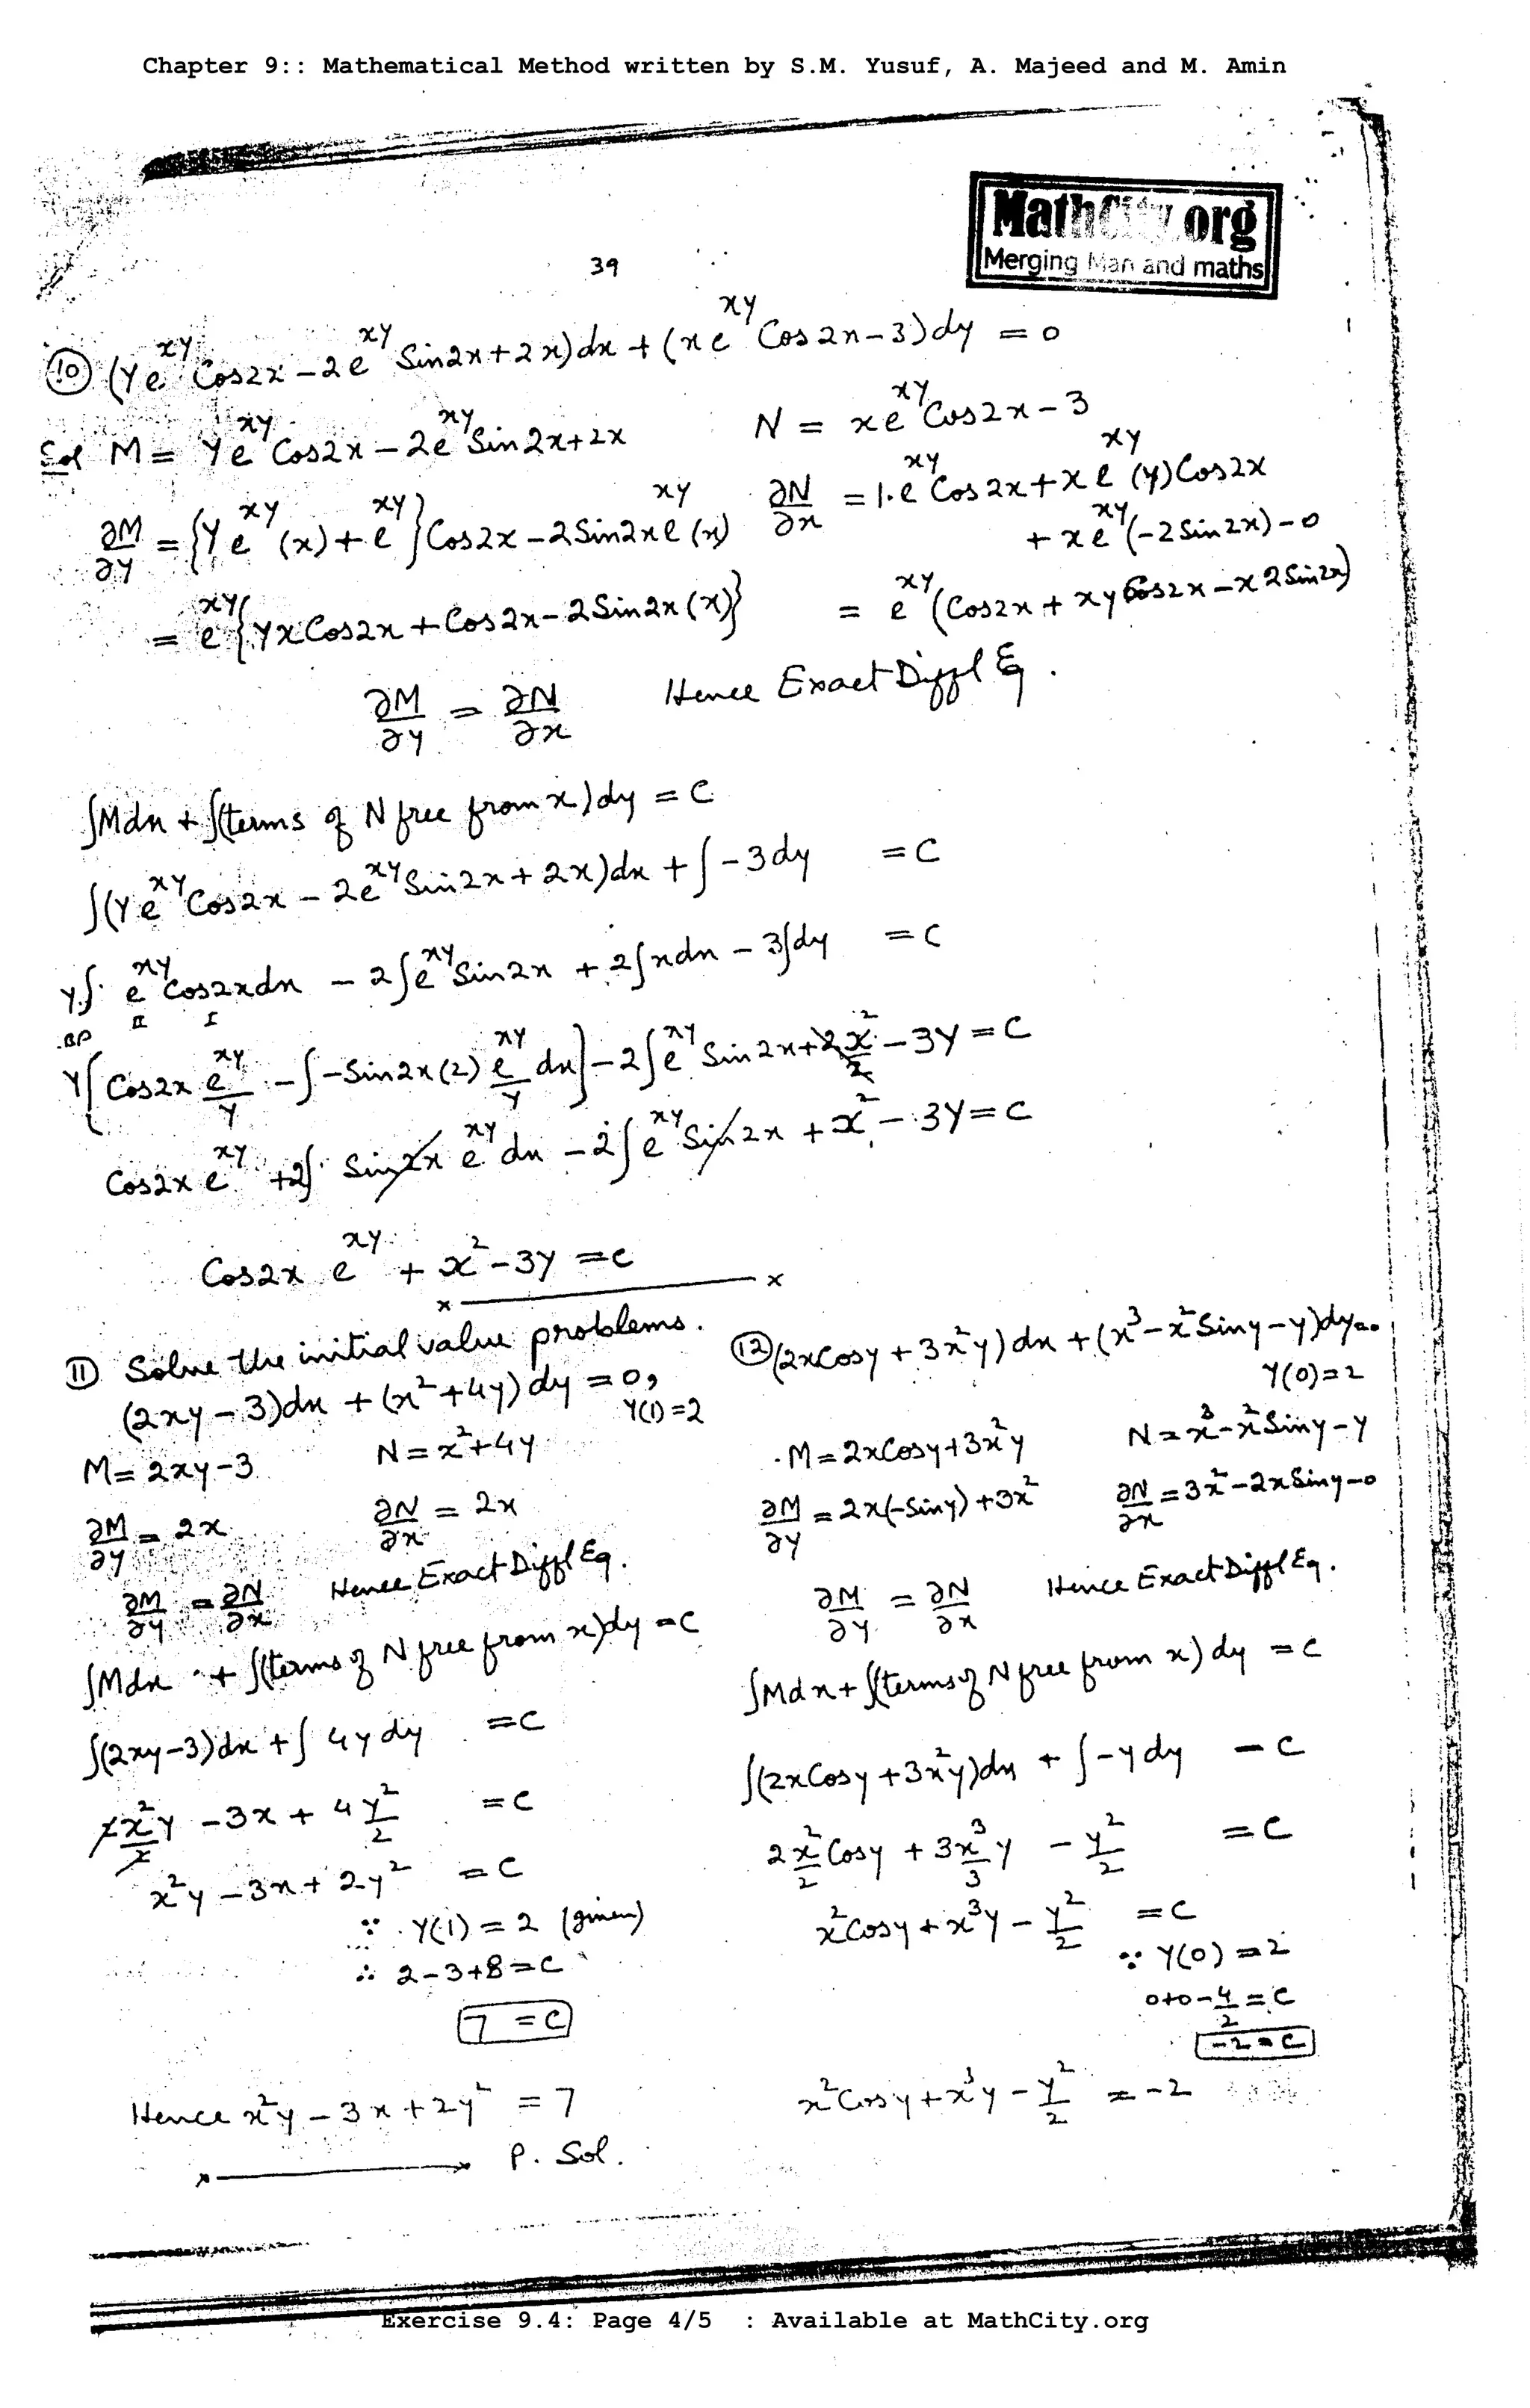 Chapter 9:: Mathematical Method written by S.M. Yusuf, A. Majeed and M. Amin
MathCity.org
Merging Man and maths
39
⑩ (ye^{xy} Cos2x − 2e^{xy} Sin2x + 2x)dx + (xe^{xy} Cos2x − 3)dy = 0
Sol M = ye^{xy} Cos2x − 2e^{xy} Sin2x + 2x    N = xe^{xy} Cos2x − 3
∂M/∂y = {ye^{xy}(x) + e^{xy}}Cos2x − 2Sin2x e^{xy}(x)    ∂N/∂x = 1.e^{xy} Cos2x + xe^{xy}(y)Cos2x
+ xe^{xy}(−2Sin2x) − 0
= e^{xy}{yxCos2x + Cos2x − 2Sin2x(x)}    = e^{xy}(Cos2x + xyCos2x − x2Sin2x)
∂M/∂y = ∂N/∂x    Hence Exact Diffl Eq.
∫Mdx + ∫(terms of N free from x)dy = C
∫(ye^{xy} Cos2x − 2e^{xy} Sin2x + 2x)dx + ∫−3dy = C
y.∫e^{xy} Cos2x dx − 2∫e^{xy} Sin2x + 2∫xdx − 3∫dy = C
.BP    II    I
y{Cos2x e^{xy}/y − ∫−Sin2x(2) e^{xy}/y dx} − 2∫e^{xy} Sin2x + 2x²/2 − 3y = C
Cos2x e^{xy} + 2∫Sin2x e^{xy} dx − 2∫e^{xy} Sin2x + x² − 3y = C
Cos2x e^{xy} + x² − 3y = c
x ——— x
⑪ Solve the initial value problems.
(2xy − 3)dx + (x² + 4y)dy = 0,
y(1) = 2
M = 2xy − 3    N = x² + 4y
∂M/∂y = 2x    ∂N/∂x = 2x
∂M/∂y = ∂N/∂x    Hence Exact Diffl Eq.
∫Mdx + ∫(terms of N free from x)dy = C
∫(2xy − 3)dx + ∫4y dy = C
2x²/2 y − 3x + 4y²/2 = C
x²y − 3x + 2y² = C
∵ y(1) = 2 (given)
∴ 2 − 3 + 8 = C
7 = C
Hence x²y − 3x + 2y² = 7
x ——— x P. Sol.
⑫ (2xCosy + 3x²y)dx + (x³ − x²Siny − y)dy=0
y(0) = 2
M = 2xCosy + 3x²y    N = x³ − x²Siny − y
∂M/∂y = 2x(−Siny) + 3x²    ∂N/∂x = 3x² − 2xSiny − 0
∂M/∂y = ∂N/∂x    Hence Exact Diffl Eq.
∫Mdx + ∫(terms of N free from x)dy = C
∫(2xCosy + 3x²y)dx + ∫−y dy − C
2x²/2 Cosy + 3x³/3 y − y²/2 = C
x²Cosy + x³y − y²/2 = C
∵ y(0) = 2
0+0 − 4/2 = C
−2 = C
x²Cosy + x³y − y²/2 = −2
Exercise 9.4: Page 4/5 : Available at MathCity.org